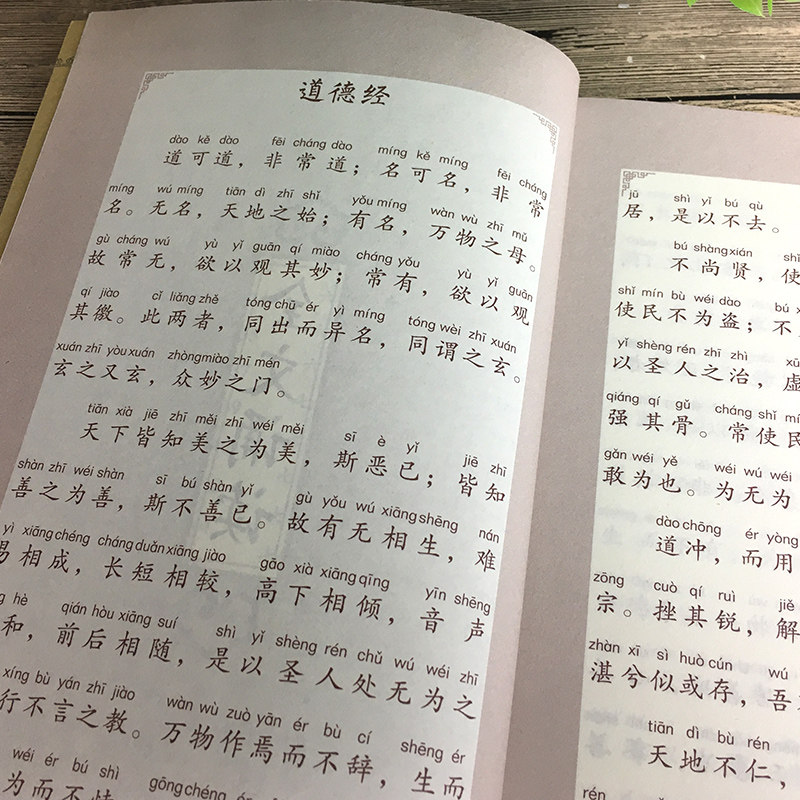 道德经
dào kě dào fēi cháng dào míng kě míng fēi cháng
道可道，非常道；名可名，非常
míng wú míng tiān dì zhī shǐ yǒu míng wàn wù zhī mǔ
名。无名，天地之始；有名，万物之母。
gù cháng wú yù yǐ guān qí miào cháng yǒu yù yǐ guān
故常无，欲以观其妙；常有，欲以观
qí jiào cǐ liǎng zhě tóng chū ér yì míng tóng wèi zhī xuán
其徼。此两者，同出而异名，同谓之玄。
xuán zhī yòu xuán zhòng miào zhī mén
玄之又玄，众妙之门。
tiān xià jiē zhī měi zhī wéi měi sī è yǐ jiē zhī
天下皆知美之为美，斯恶已；皆知
shàn zhī wéi shàn sī bú shàn yǐ gù yǒu wú xiāng shēng nán
善之为善，斯不善已。故有无相生，难
yì xiāng chéng cháng duǎn xiāng jiào gāo xià xiāng qīng yīn shēng
易相成，长短相较，高下相倾，音声
hè qián hòu xiāng suí shì yǐ shèng rén chǔ wú wéi zhī
和，前后相随，是以圣人处无为之
xíng bù yán zhī jiào wàn wù zuò yān ér bù cí shēng ér
行不言之教。万物作焉而不辞，生而
wéi ér bú shì gōng chéng
为而不恃
jū shì yǐ bú qù
居，是以不去。
bú shàng xián shǐ
不尚贤，使
shǐ mín bù wéi dào bú
使民不为盗；不
shèng rén zhī zhì
以圣人之治，虚
qiáng qí gǔ cháng shǐ
强其骨。常使民
gǎn wéi yě wéi wú wéi
敢为也。为无为
dào chōng ér yòng
道冲，而用
zōng cuò qí ruì jiě
宗。挫其锐，解
zhàn xī sì huò cún wú
湛兮似或存，吾
tiān dì bù rén
天地不仁，
rén